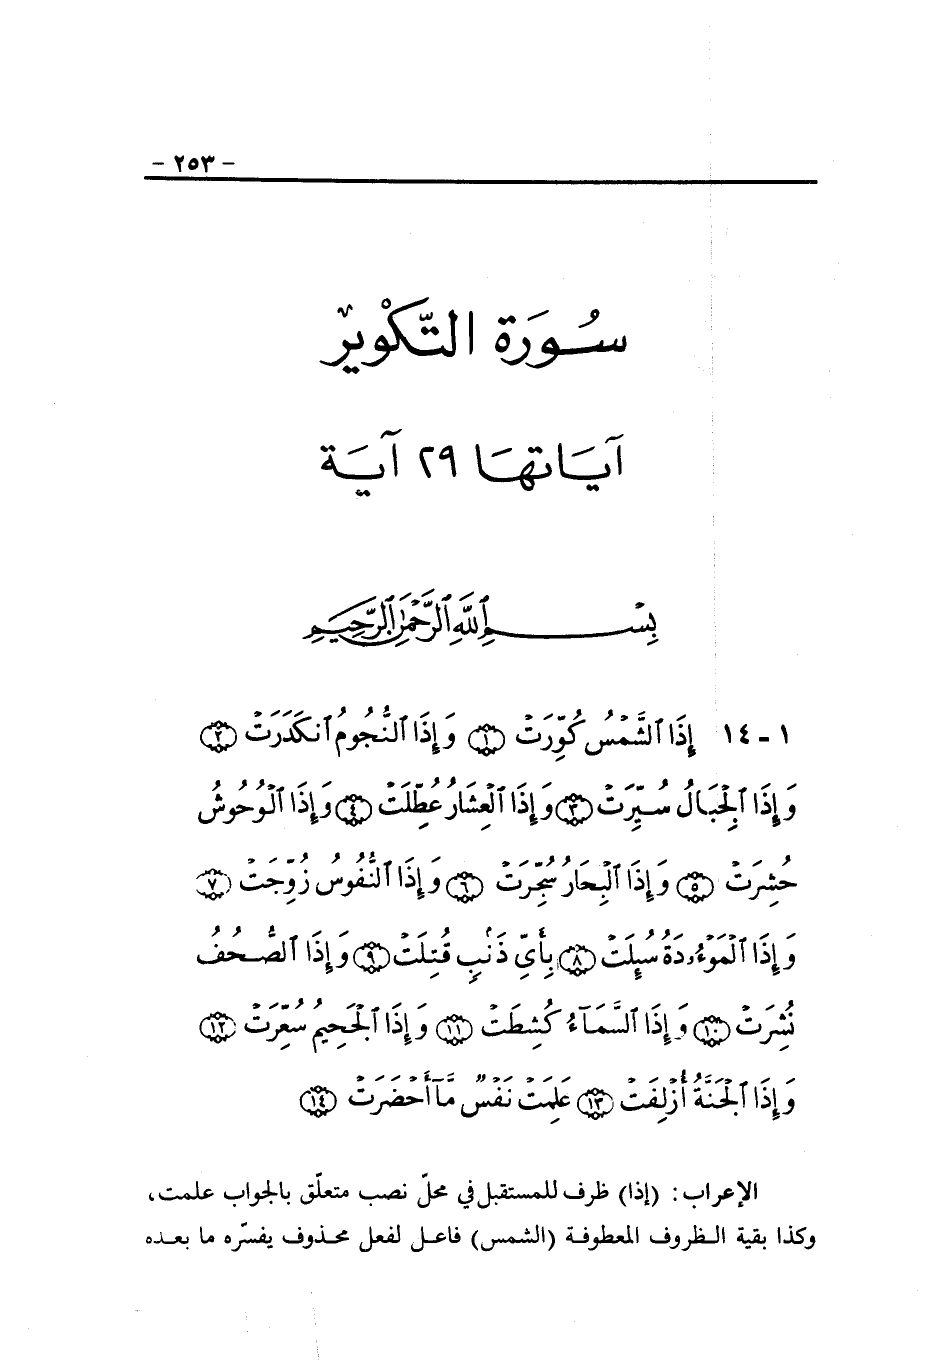 - ٢٥٣ -
سُورَة التَّكْوِيرٌ
آيَاتهَا ٢٩ آيَة
بِسْمِ ٱللَّهِ ٱلرَّحْمَٰنِ ٱلرَّحِيمِ
١ - ١٤ إِذَا ٱلشَّمْسُ كُوِّرَتْ ١ وَإِذَا ٱلنُّجُومُ ٱنكَدَرَتْ ٢
وَإِذَا ٱلْجِبَالُ سُيِّرَتْ ٣ وَإِذَا ٱلْعِشَارُ عُطِّلَتْ ٤ وَإِذَا ٱلْوُحُوشُ
حُشِرَتْ ٥ وَإِذَا ٱلْبِحَارُ سُجِّرَتْ ٦ وَإِذَا ٱلنُّفُوسُ زُوِّجَتْ ٧
وَإِذَا ٱلْمَوْءُۥدَةُ سُئِلَتْ ٨ بِأَيِّ ذَنۢبٍ قُتِلَتْ ٩ وَإِذَا ٱلصُّحُفُ
نُشِرَتْ ١٠ وَإِذَا ٱلسَّمَآءُ كُشِطَتْ ١١ وَإِذَا ٱلْجَحِيمُ سُعِّرَتْ ١٢
وَإِذَا ٱلْجَنَّةُ أُزْلِفَتْ ١٣ عَلِمَتْ نَفْسٌ مَّآ أَحْضَرَتْ ١٤
الإعراب: (إذا) ظرف للمستقبل في محلّ نصب متعلّق بالجواب علمت،
وكذا بقية الظروف المعطوفة (الشمس) فاعل لفعل محذوف يفسّره ما بعده